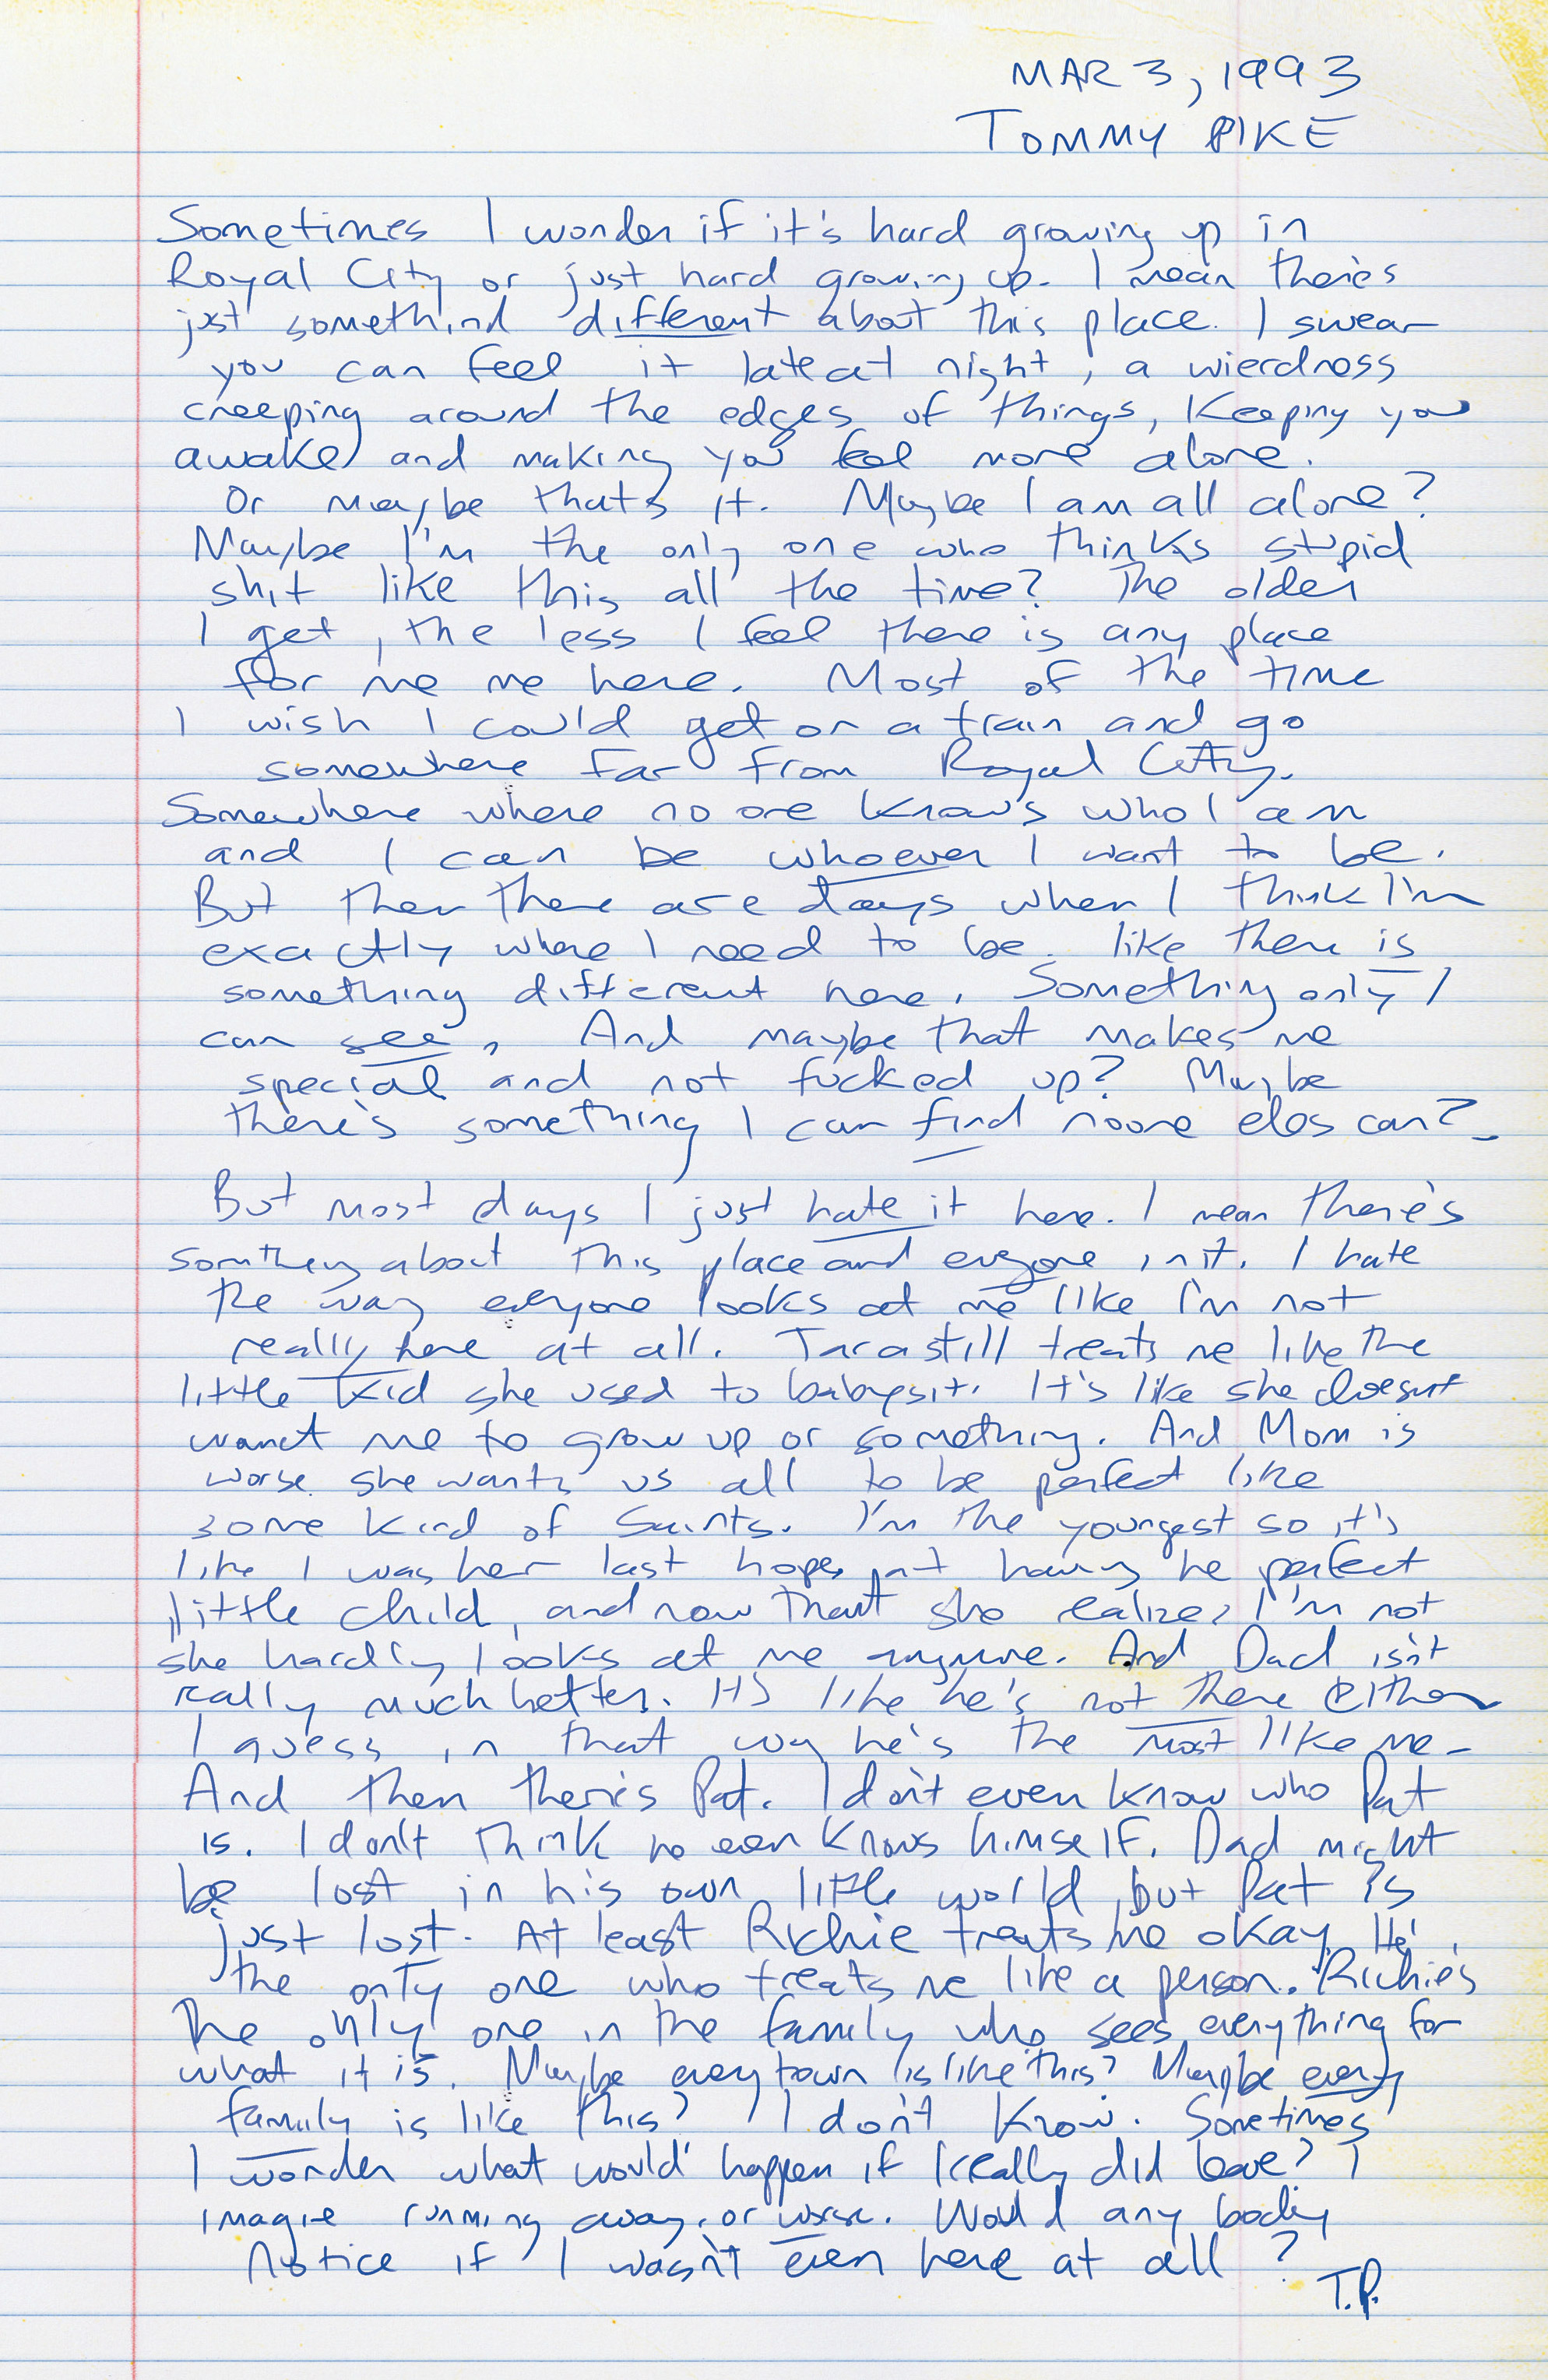 MAR 3, 1993
TOMMY PIKE
Sometimes I wonder if it's hard growing up in
Royal City or just hard growing up. I mean there's
just somethind different about this place. I swear
you can feel it late at night, a wierdness
creeping around the edges of things, keeping you
awake and making you feel more alone.
Or maybe that's it. Maybe I am all alone?
Maybe I'm the only one who thinks stupid
shit like this all the time? The older
I get, the less I feel there is any place
for me me here. Most of the time
I wish I could get on a train and go
somewhere far from Royal City.
Somewhere where no one knows who I am
and I can be whoever I want to be.
But then there are days when I think I'm
exactly where I need to be. like there is
something different here. Something only I
can see, And maybe that makes me
special and not fucked up? Maybe
there's something I can find noone eles can?
But most days I just hate it here. I mean there's
somthing about this place and everyone in it. I hate
the way everyone looks at me like I'm not
really here at all. Tara still treats me like the
little kid she used to babysit. It's like she doesn't
want me to grow up or something. And Mom is
worse she wants us all to be perfect like
some kind of Saints. I'm the youngest so it's
like I was her last hope at having he perfect
little child, and now that she realizes I'm not
she hardly looks at me anymore. And Dad isn't
really much better. It's like he's not there either
I guess in that way he's the most like me-
And then there's Pat. I don't even know who Pat
is. I don't think he even knows himself. Dad might
be lost in his own little world but Pat is
just lost. At least Richie treats me okay. He's
the only one who treats me like a person. Richie's
the only one in the family who sees everything for
what it is. Maybe every town is like this? Maybe every
family is like this? I don't know. Sometimes
I wonder what would happen if I really did leave? I
imagie running away, or worse. Would any body
notice if I wasn't even here at all?
T.P.